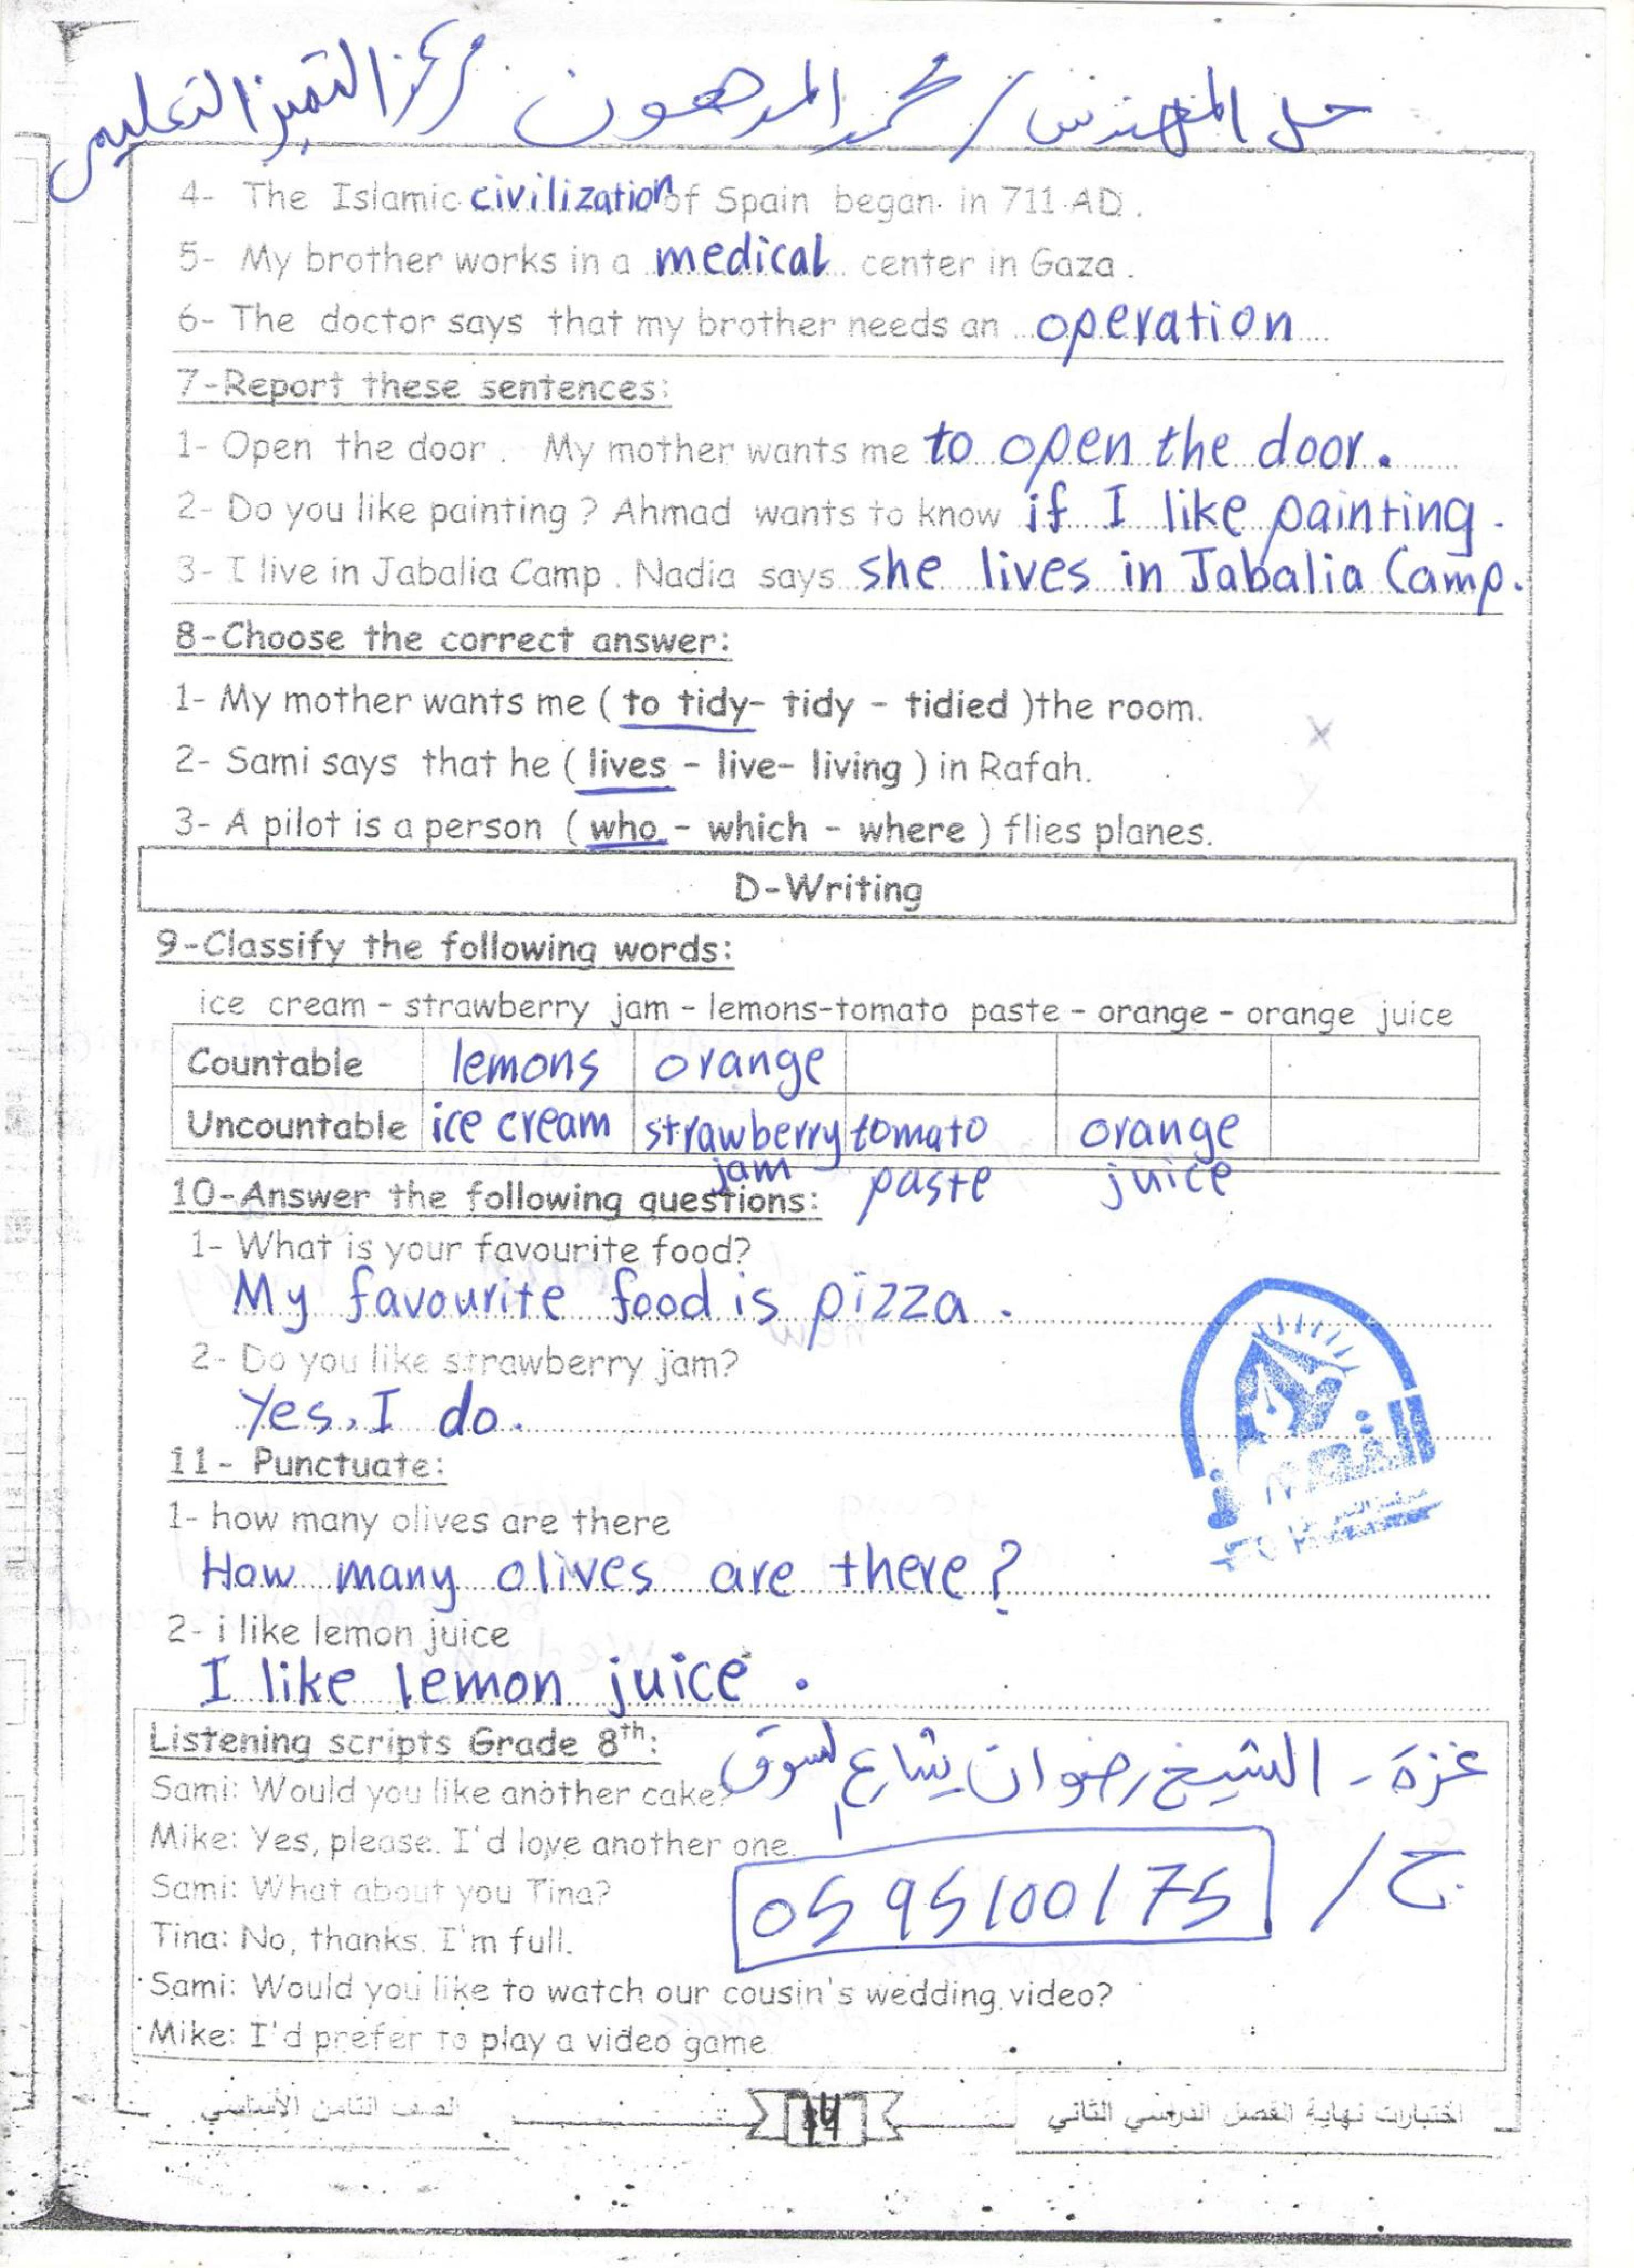 حل المهندس / محمد المدهون مركز التميز التعليمي
4- The Islamic civilization of Spain began in 711 AD.
5- My brother works in a medical center in Gaza.
6- The doctor says that my brother needs an operation
7-Report these sentences:
1- Open the door. My mother wants me to open the door.
2- Do you like painting? Ahmad wants to know if I like painting.
3- I live in Jabalia Camp. Nadia says she lives in Jabalia Camp.
8-Choose the correct answer:
1- My mother wants me ( to tidy- tidy - tidied )the room.
2- Sami says that he ( lives - live- living ) in Rafah.
3- A pilot is a person ( who - which - where ) flies planes.
D-Writing
9-Classify the following words:
ice cream - strawberry jam - lemons-tomato paste - orange - orange juice
Countable lemons orange
Uncountable ice cream strawberry jam tomato paste orange juice
10-Answer the following questions:
1- What is your favourite food?
My favourite food is pizza.
2- Do you like strawberry jam?
Yes, I do.
11- Punctuate:
1- how many olives are there
How many olives are there?
2- i like lemon juice
I like lemon juice.
Listening scripts Grade 8th:
غزة - الشيخ رضوان شارع السوق
Sami: Would you like another cake?
Mike: Yes, please. I'd love another one.
ج / 0595100175
Sami: What about you Tina?
Tina: No, thanks. I'm full.
Sami: Would you like to watch our cousin's wedding video?
Mike: I'd prefer to play a video game
اختبارات نهاية الفصل الدراسي الثاني 14 الصف الثامن الأساسي
التميز